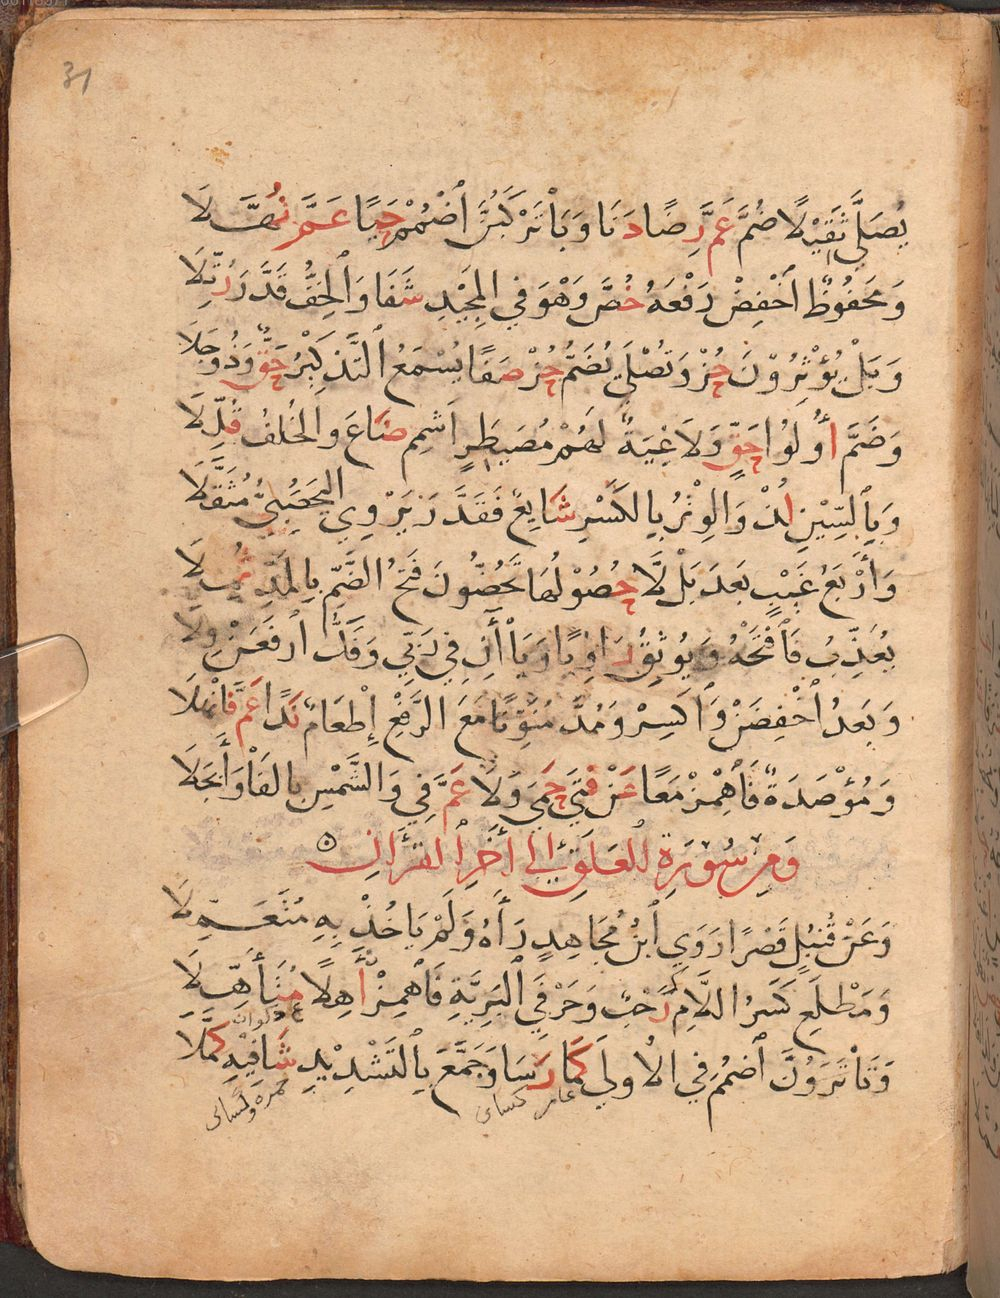 31
يُصَلَّى ثَقِيْلًا ضُمَّ عَمَّ رِضًا دَنَا وَبَا تَرْكَبُنَّ اضْمُمْ حَيًا عَمَّ نُهَّلَا
وَمَحْفُوظٌ اخْفِضْ رَفْعَهُ خُصَّ وَهْوَ فِي المَجِيْدِ شَفَا وَالْخِفُّ قَدَّرَ رُتِّلَا
وَبَلْ يُؤْثِرُوْنَ حُزْ وَتُصْلَى يُضَمُّ حُزْ صَفَا يُسْمَعُ التَّذْكِيْرُ حَقٌّ وَذُو جَلَا
وَضَمَّ أُولُوا حَقٍّ وَلَاغِيَةٌ لَهُمْ مُصَيْطِرٍ اَشْمِمْ ضَاعَ والخُلفُ قُلِّلَا
وَبِالسِّيْنِ لُذْ وَالوِتْرُ بِالكَسْرِ شَايِعٌ فَقَدَّرَ يَرْوِي اليَحْصَبِيُّ مُثَقَّلَا
وَأَرْبَعُ غَيْبٍ بَعدَ بَلْ لَا حُصُوْلُهَا تَحُضُّونَ فَتْحُ الضَّمِّ بِالمَدِّ ثُمِّلَا
يُعَذِّبُ فَافْتَحْهُ وَيُوثِقُ رَاوِيًا وَيَاأنِ فِي رَبِّي وَفَكُّ ارفَعَنْ وِلَا
وَبَعدُ اخْفِضَنْ وَاكسِرْ وَمُدَّ مُنَوِّنًا مَعَ الرَّفْعِ إِطعَامٌ نَدًا عَمَّ فَانْهَلَا
وَمُؤْصَدَةٌ فَاهْمِزْ مَعًا عَنْ فَتَى حِمَى وَلَا عَمَّ فِي وَالشَّمْسِ بِالفَا وَأَنجَلَا
وَمِنْ سُوْرَةِ العَلَقِ إِلَى أٰخِرِ القُرْأٰنِ
وَعَنْ قُنْبُلٍ قَصْرًا رَوَى ابْنُ مُجَاهِدٍ رَأٰهُ وَلَمْ يَاخُذْ بِهِ مُتَعَمِّلَا
وَمَطْلَعِ كَسْرُ اللَّامِ رَحْبٌ وَحَرْفَيِ الْبَرِيَّةِ فَاهْمِزْ أٰهِلًا مُتَأَهِّلَا
ع ذكوان
وَتَا تَرَوُنَّ اضْمُمْ فِي الاُولَى كَمَا رَسَا وَجَمَّعَ بِالتَّشْدِيْدِ شَافِيْهِ كَمَّلَا
عامر كساى
حمزه وكساى